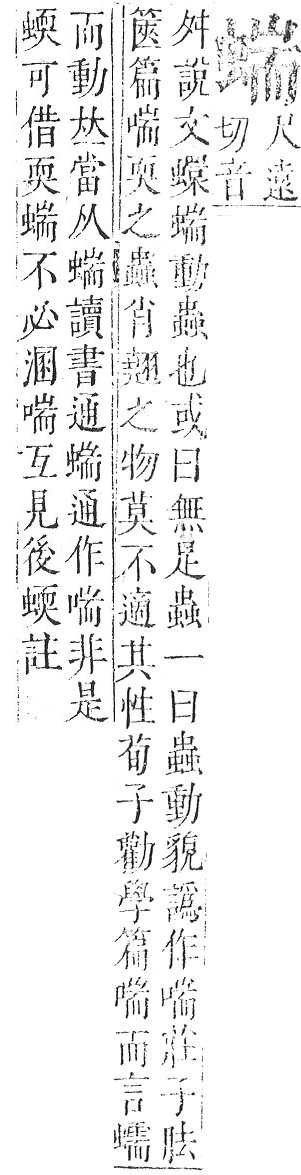 𧍒
尺遠
切音
舛說文蝡𧍒動蟲也或曰無足蟲一曰蟲動貌譌作喘莊子胠
篋篇喘耎之蟲肖翹之物莫不適其性荀子勸學篇喘而言蠕
而動𠀤當从𧍒讀書通𧍒通作喘非是
蝡可借耎𧍒不必溷喘互見後蝡註